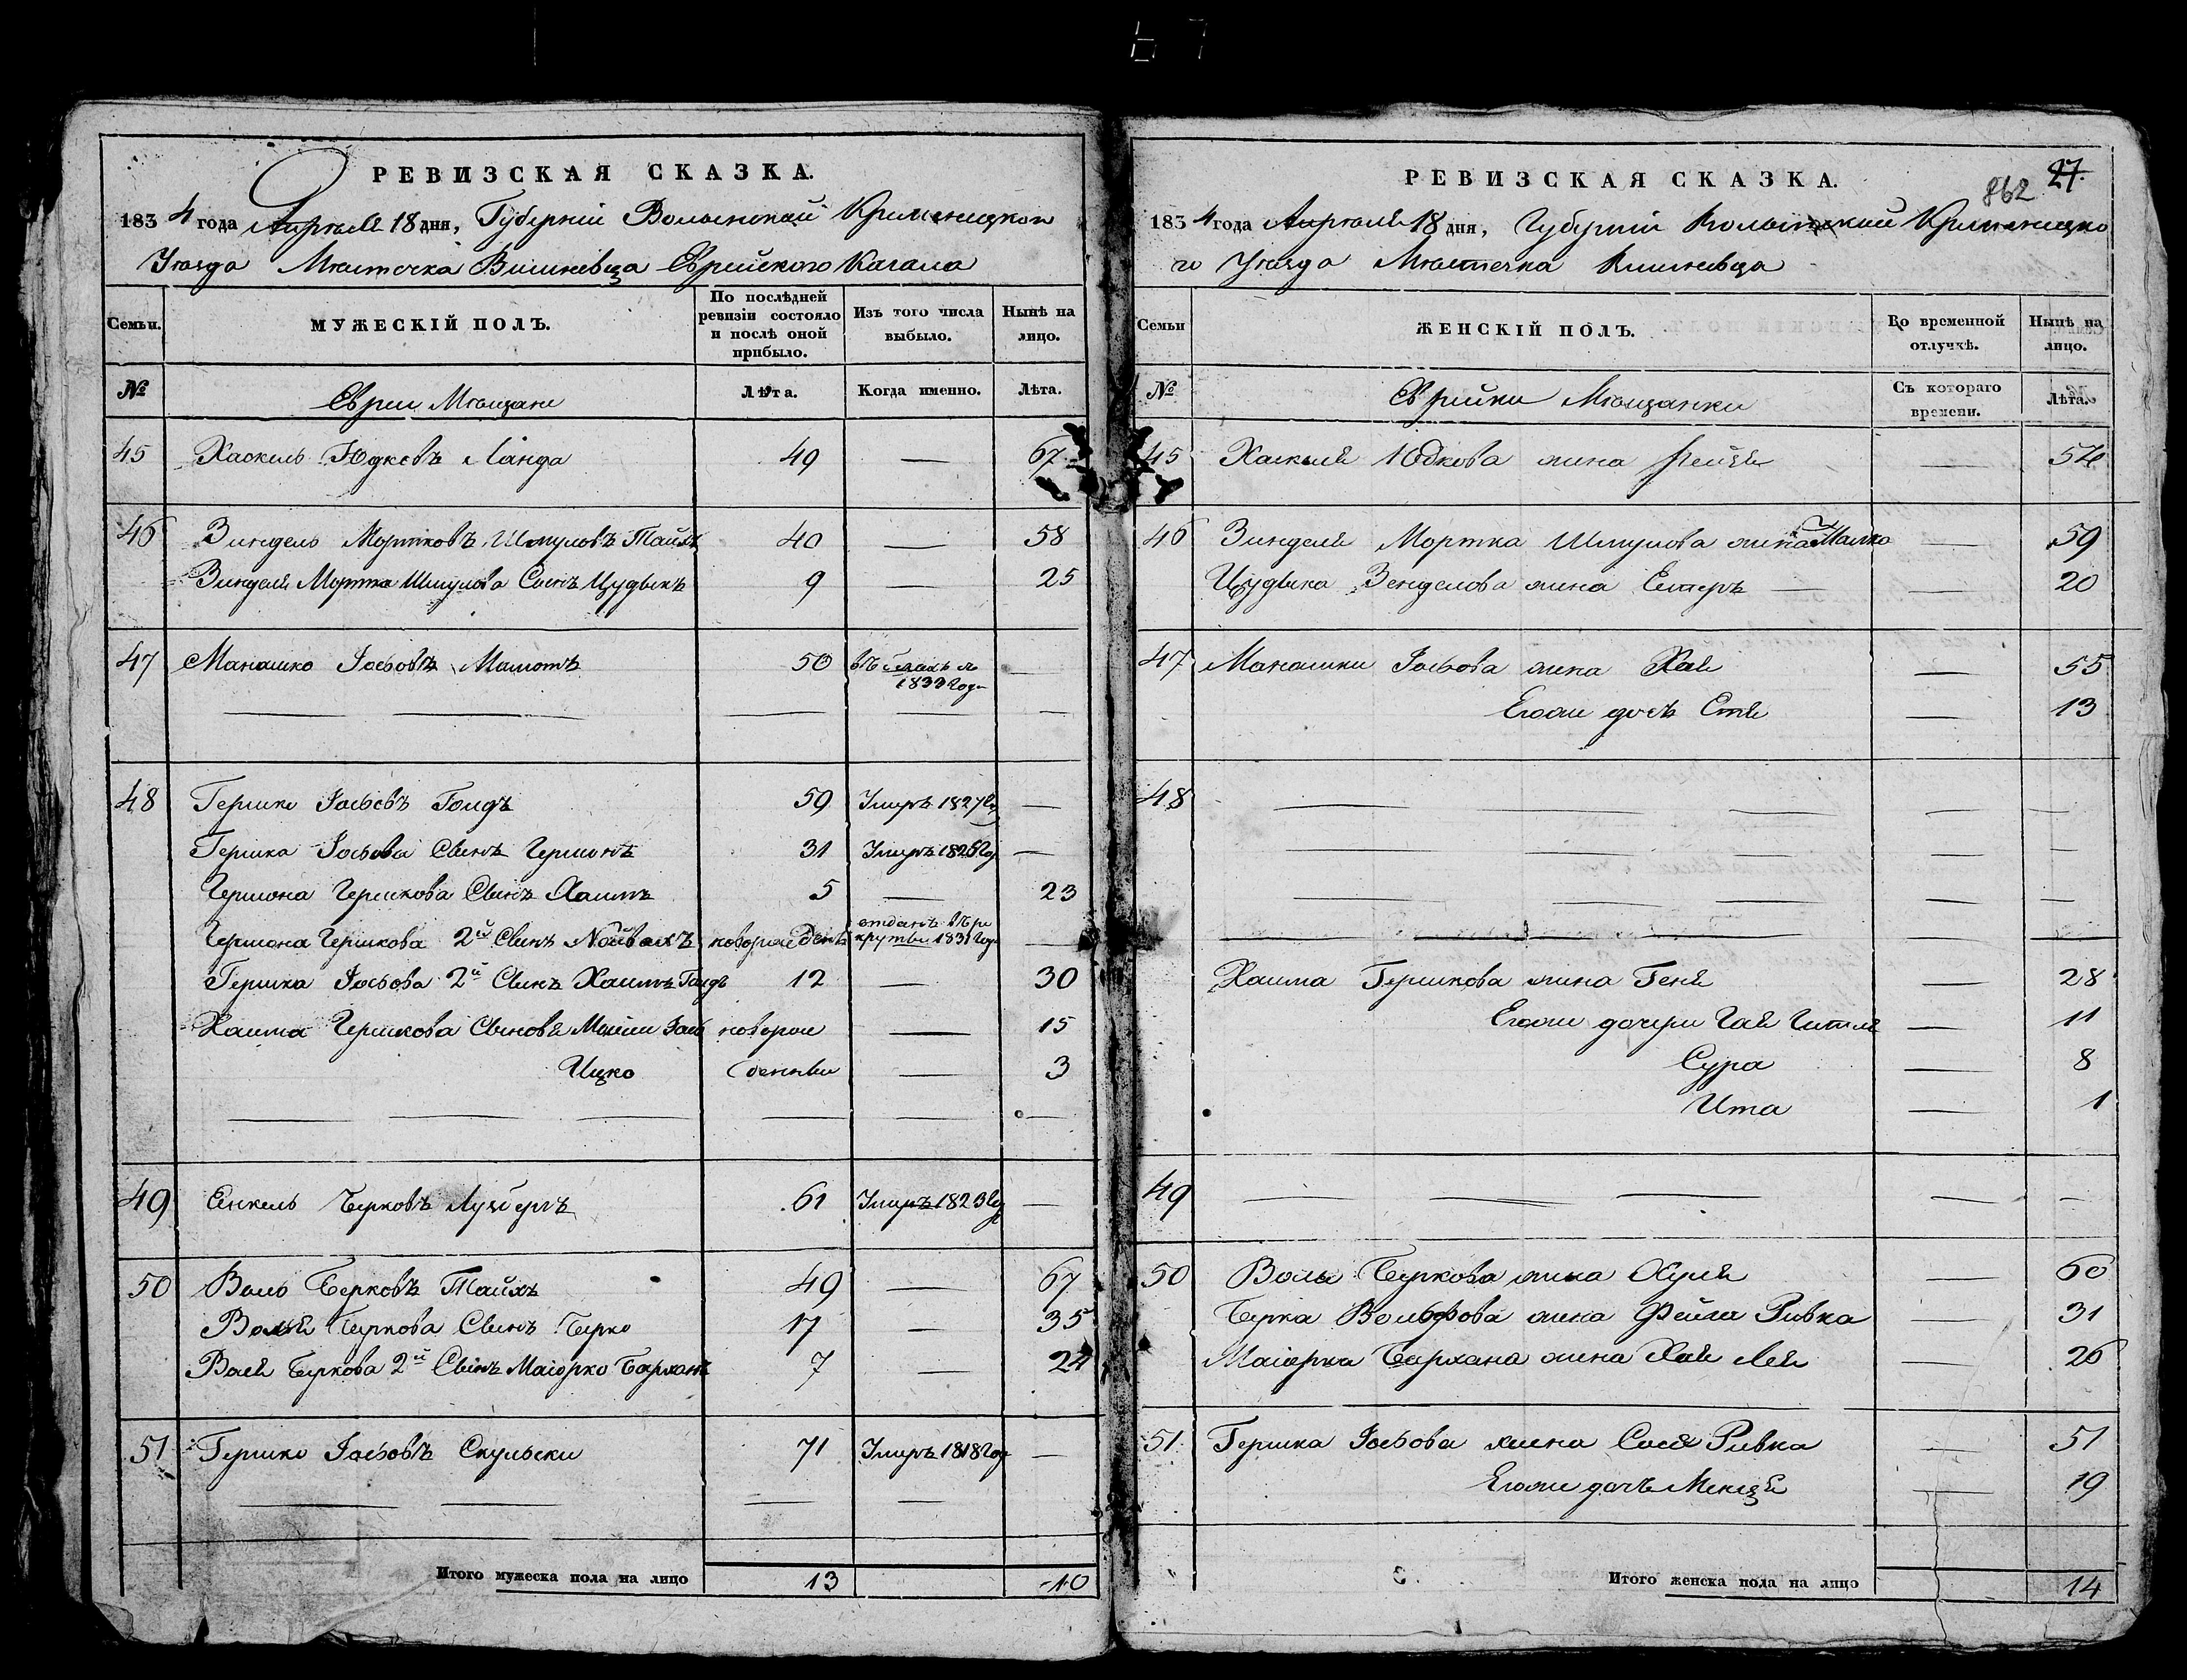 РЕВИЗСКАЯ СКАЗКА.
1834 года Апреля 18 дня, Губерніи Волынской Кременецкого
Уезда Местечка Вишневца Еврейского Кагала
Семьи. МУЖЕСКІЙ ПОЛЪ. По послѣдней ревизіи состояло и послѣ оной прибыло. Изъ того числа выбыло. Нынѣ на лицо.
№ Евреи Мещане Лѣта. Когда именно. Лѣта.
45 Хаскель Юдковъ Ланда 49 — 67
46 Зиндель Мортковъ Шмуловъ Тайхъ 40 — 58
Зинделя Мортка Шмулова Сынъ Цудыкъ 9 — 25
47 Манашко Іосьовъ Мамотъ 50 въ бегахъ 1833 Года —
48 Гершко Іосьовъ Голдъ 59 Умеръ 1827 Год —
Гершка Іосьова Сынъ Гершонъ 31 Умеръ 1826 Год —
Гершона Гершкова Сынъ Хаимъ 5 — 23
Гершона Гершкова 2й Сынъ новорожденъ отданъ в рекруты 1831 Года —
Гершка Іосьова 2й Сынъ Хаимъ Голдъ 12 — 30
Хаима Гершкова Сыновя Мошии Іось новорож — 15
Ицко денныи — 3
49 Енкель Берковъ 61 Умеръ 1823 Год —
50 Воль Берковъ Тайхъ 49 — 67
Воля Беркова Сынъ Берко 17 — 35
Воля Беркова 2й Сынъ Маіорко Барханъ 7 — 24
51 Гершко Іосьовъ Скульски 71 Умеръ 1818 Год —
Итого мужеска пола на лицо 13 10
РЕВИЗСКАЯ СКАЗКА.
862 27.
1834 года Апреля 18 дня, Губерніи Волынскии Кременецко
го Уезда Местечка Вишневца
Семьи ЖЕНСКІЙ ПОЛЪ. Во временной отлучкѣ. Нынѣ на лицо.
№ Еврейки Мещанки Съ котораго времени. Лѣта.
45 Хаскеля Юдкова жена Рейзя — 54
46 Зинделя Мортка Шмулова жена Малка — 59
Цудыка Зенделова жена Естеръ — 20
47 Манашки Іосьова жена Хая — 55
Егоже дочь Стя — 13
48
Хаима Гершкова жена Геня — 28
Егоже дочери Хая Гитля — 11
Сура — 8
Ита — 1
49
50 Воля Беркова жена Хуля — 60
Берка Вольфова жена Фейга Ривка — 31
Маіорка Бархана жена Хая Лея — 26
51 Гершка Іосьова жена Сося Ривка — 51
Егоже дочь Менця — 19
Итого женска пола на лицо 14